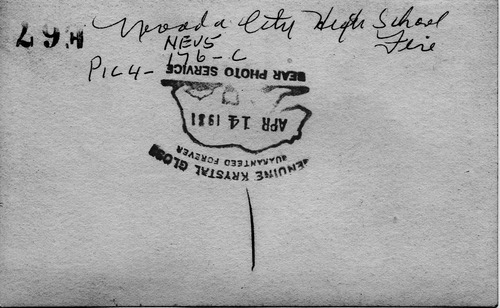 Nevada City High School
Fire
NEV5
176-C
PIC4-
GENUINE KRYSTAL GLOSS
GUARANTEED FOREVER
APR 14
BEAR PHOTO SERVICE